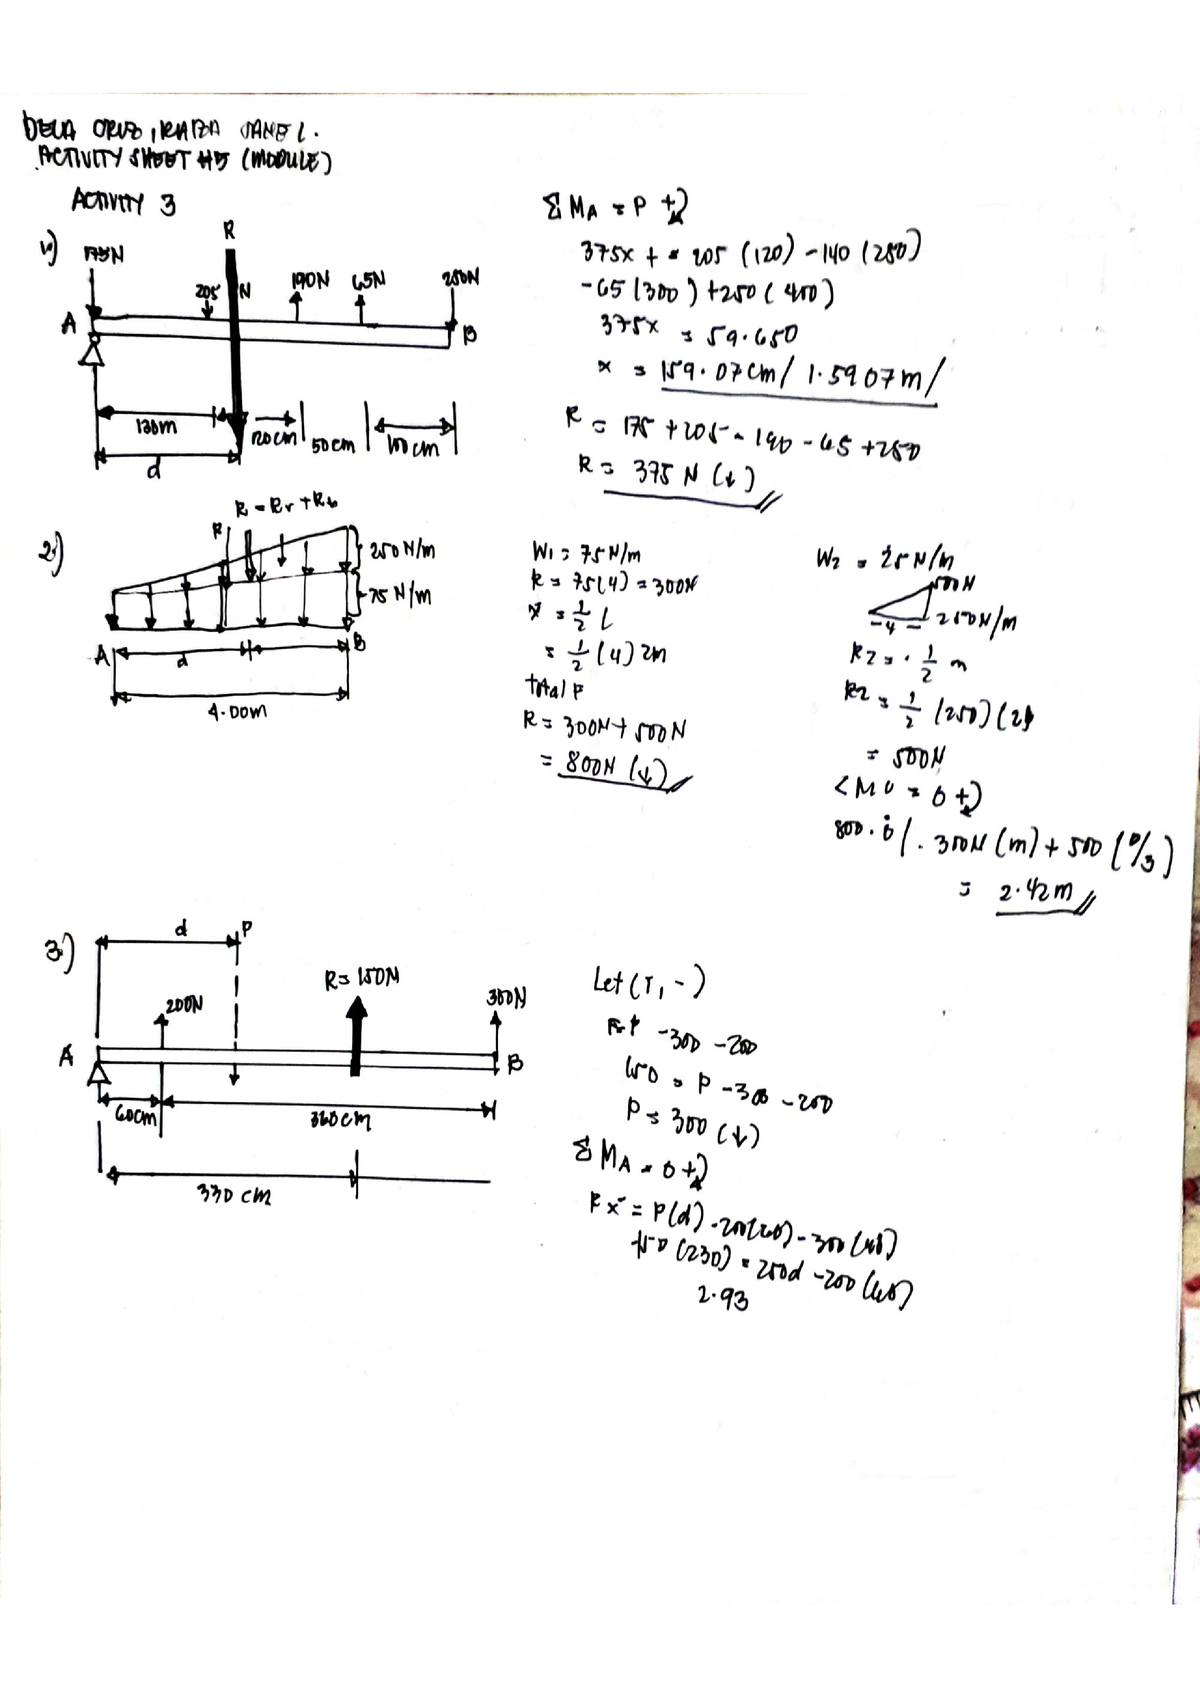 ACTIVITY SHEET #5 (MODULE)
ACTIVITY 3
1.)
175N
R
205 N
190N
65N
250N
A
B
120cm
50cm
100cm
d
ΣMA = P +
375x + = 205 (120) - 140 (280)
-65 (300) + 250 (400)
375x = 59.650
x = 159.07cm / 1.5907m /
R = 175 + 205 - 190 - 65 + 250
R = 375 N (↓)
2.)
R = Rr + Rb
R
250 N/m
75 N/m
A
B
d
4.00m
W1 = 75 N/m
R = 75(4) = 300N
x = 1/2 L
= 1/2 (4) 2m
total P
R = 300N + 500N
= 800N (↓)
W2 = 25 N/m
500N
-4-
250N/m
R2 = . 1/2 m
R2 = 1/2 (250) (2)
= 500N
<M0 = 0 +
300N (m) + 500
= 2.42m
3.)
d
P
200N
R = 150N
300N
A
B
60cm
360cm
330 cm
-300 -200
150 = P - 300 - 200
P = 300 (↓)
ΣMA = 0 +
Rx = P(d) - 200(60) - 300
(230) = 250d - 200
2.93